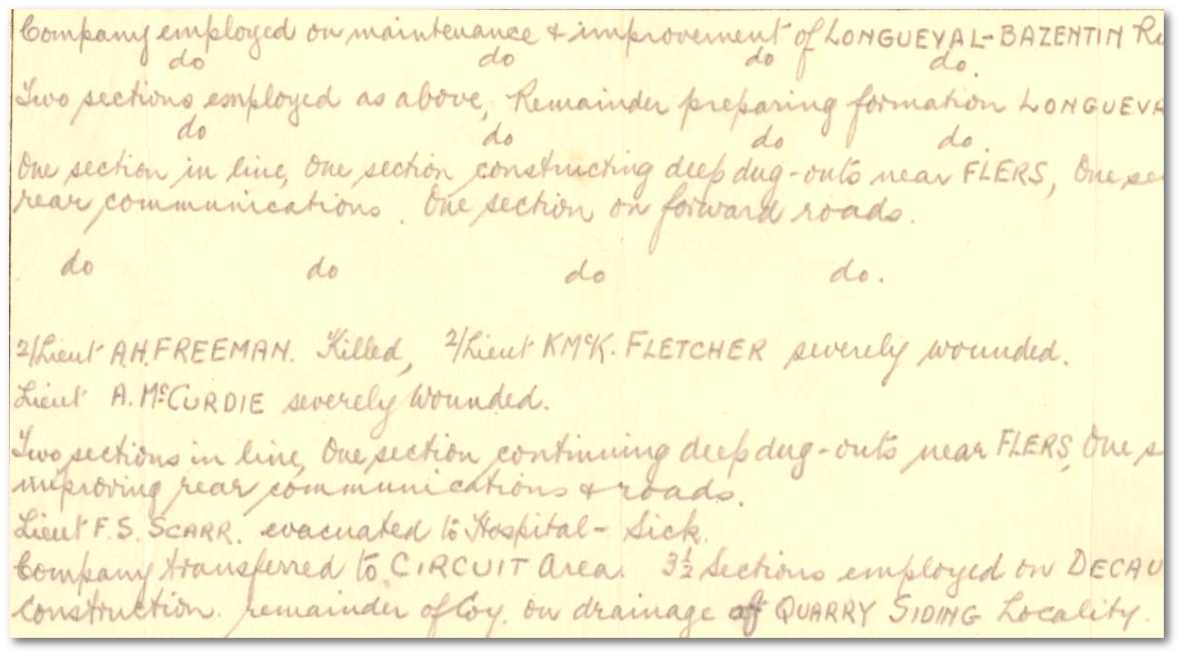 Company employed on maintenance & improvement of LONGUEVAL-BAZENTIN
do do do do.
Two sections employed as above, Remainder preparing formation LONGUEVA
do do do do.
One section in line, One section constructing deep dug-outs near FLERS, One se
rear communications. One section on forward roads.
do do do do.
2/Lieut A.H. FREEMAN. Killed, 2/Lieut K McK. FLETCHER severely wounded.
Lieut A. McCURDIE severely wounded.
Two sections in line, One section continuing deep dug-outs near FLERS, One s
improving rear communications & roads.
Lieut F.S. SCARR. evacuated to Hospital - Sick.
Company transferred to CIRCUIT Area. 3½ Sections employed on DECAU
Construction. remainder of Coy. on drainage of QUARRY SIDING Locality.